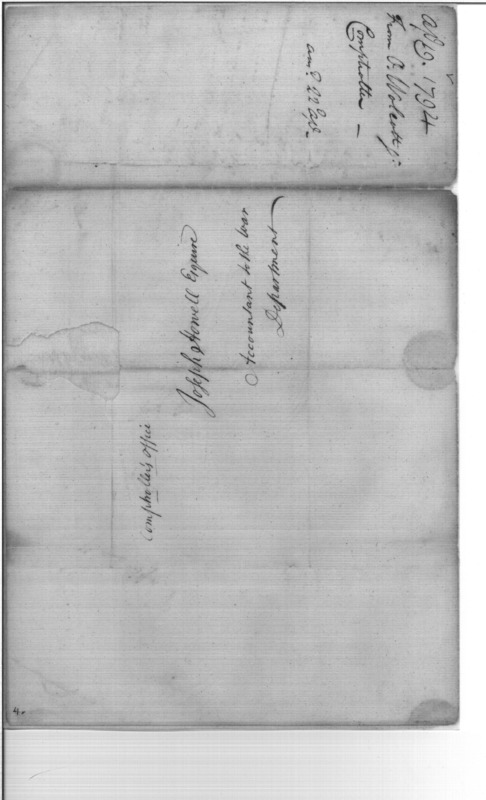 Apl 9. 1794
From O. Wolcott Jr.
Comptroller —
ansd. 22 Apl.
Joseph Howell Esquire
Accountant to the War
Department
Comptrollers office
4.